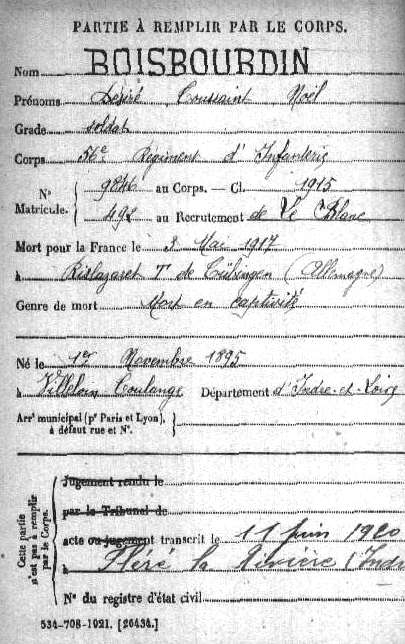 PARTIE À REMPLIR PAR LE CORPS.
Nom BOISBOURDIN
Prénoms Désiré Toussaint Noël
Grade soldat
Corps 56e Régiment d'Infanterie
N° Matricule. { 9846 au Corps. — Cl. 1915
492 au Recrutement de Le Blanc
Mort pour la France le 3 Mai 1917
à de Tübingen (Allemagne)
Genre de mort Mort en captivité
Né le 1er Novembre 1895
à Villeloin Coulangé Département d'Indre-et-Loire
Arrt municipal (pr Paris et Lyon), à défaut rue et N°. }
Cette partie n'est pas à remplir par le Corps. {
Jugement rendu le
par le Tribunal de
acte ou jugement transcrit le 11 juin 1920
à Cléré la Rivière (Indre
N° du registre d'état civil
534-708-1921. [26434.]